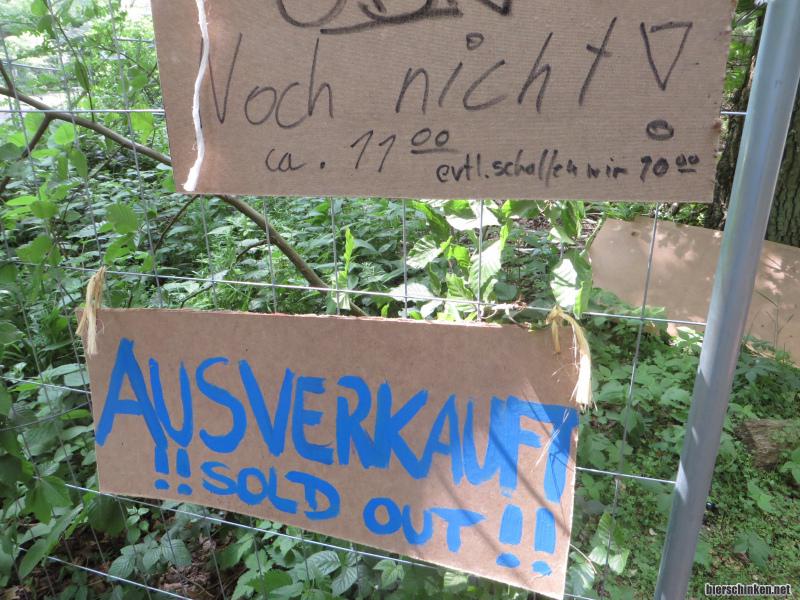 Noch nicht!
ca. 11⁰⁰ evtl. schaffen wir 10⁰⁰
AUSVERKAUFT
!! SOLD OUT !!
bierschinken.net